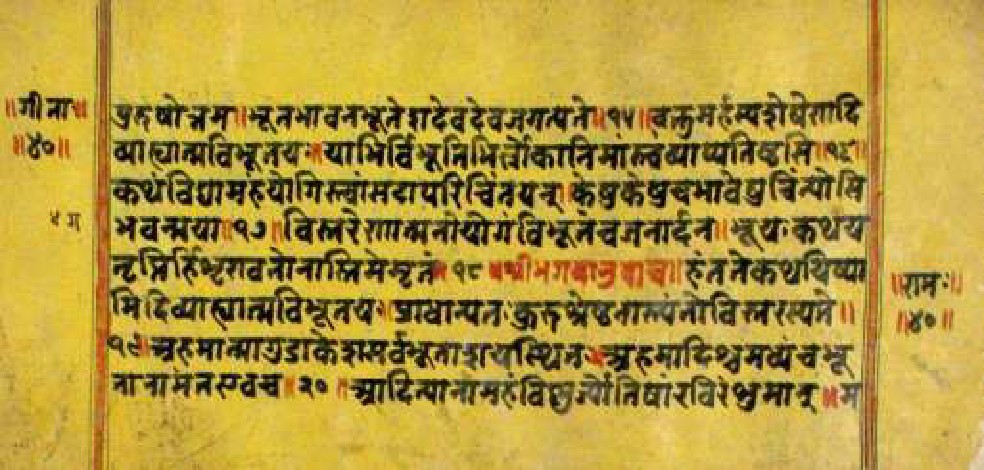 ॥गीता॥
॥४०॥
पुरुषोत्तम॥भूतभावनभूतेशदेवदेवजगत्पते॥१५॥वक्तुमर्हस्यशेषेणदि
व्याह्यात्मविभूतयः॥याभिर्विभूतिभिर्लोकानिमांस्त्वंव्याप्यतिष्ठसि॥१६॥
कथंविद्यामहंयोगिंस्त्वांसदापरिचिंतयन्॥केषुकेषुचभावेषुचिंत्योसि
भवन्मया॥१७॥विस्तरेणात्मनोयोगंविभूतिंचजनार्दन॥भूयःकथय
तृप्तिर्हिशृण्वतोनास्तिमेमृतं॥१८॥श्रीभगवानुवाच॥हंततेकथयिष्या
मिदिव्याह्यात्मविभूतयः॥प्राधान्यतःकुरुश्रेष्ठनास्त्यंतोविस्तरस्यमे॥
१९॥अहमात्मागुडाकेशसर्वभूताशयस्थितः॥अहमादिश्चमध्यंचभू
तानामंतएवच॥२०॥आदित्यानामहंविष्णुर्ज्योतिषांरविरंशुमान्॥म
॥रामः॥
॥४०॥